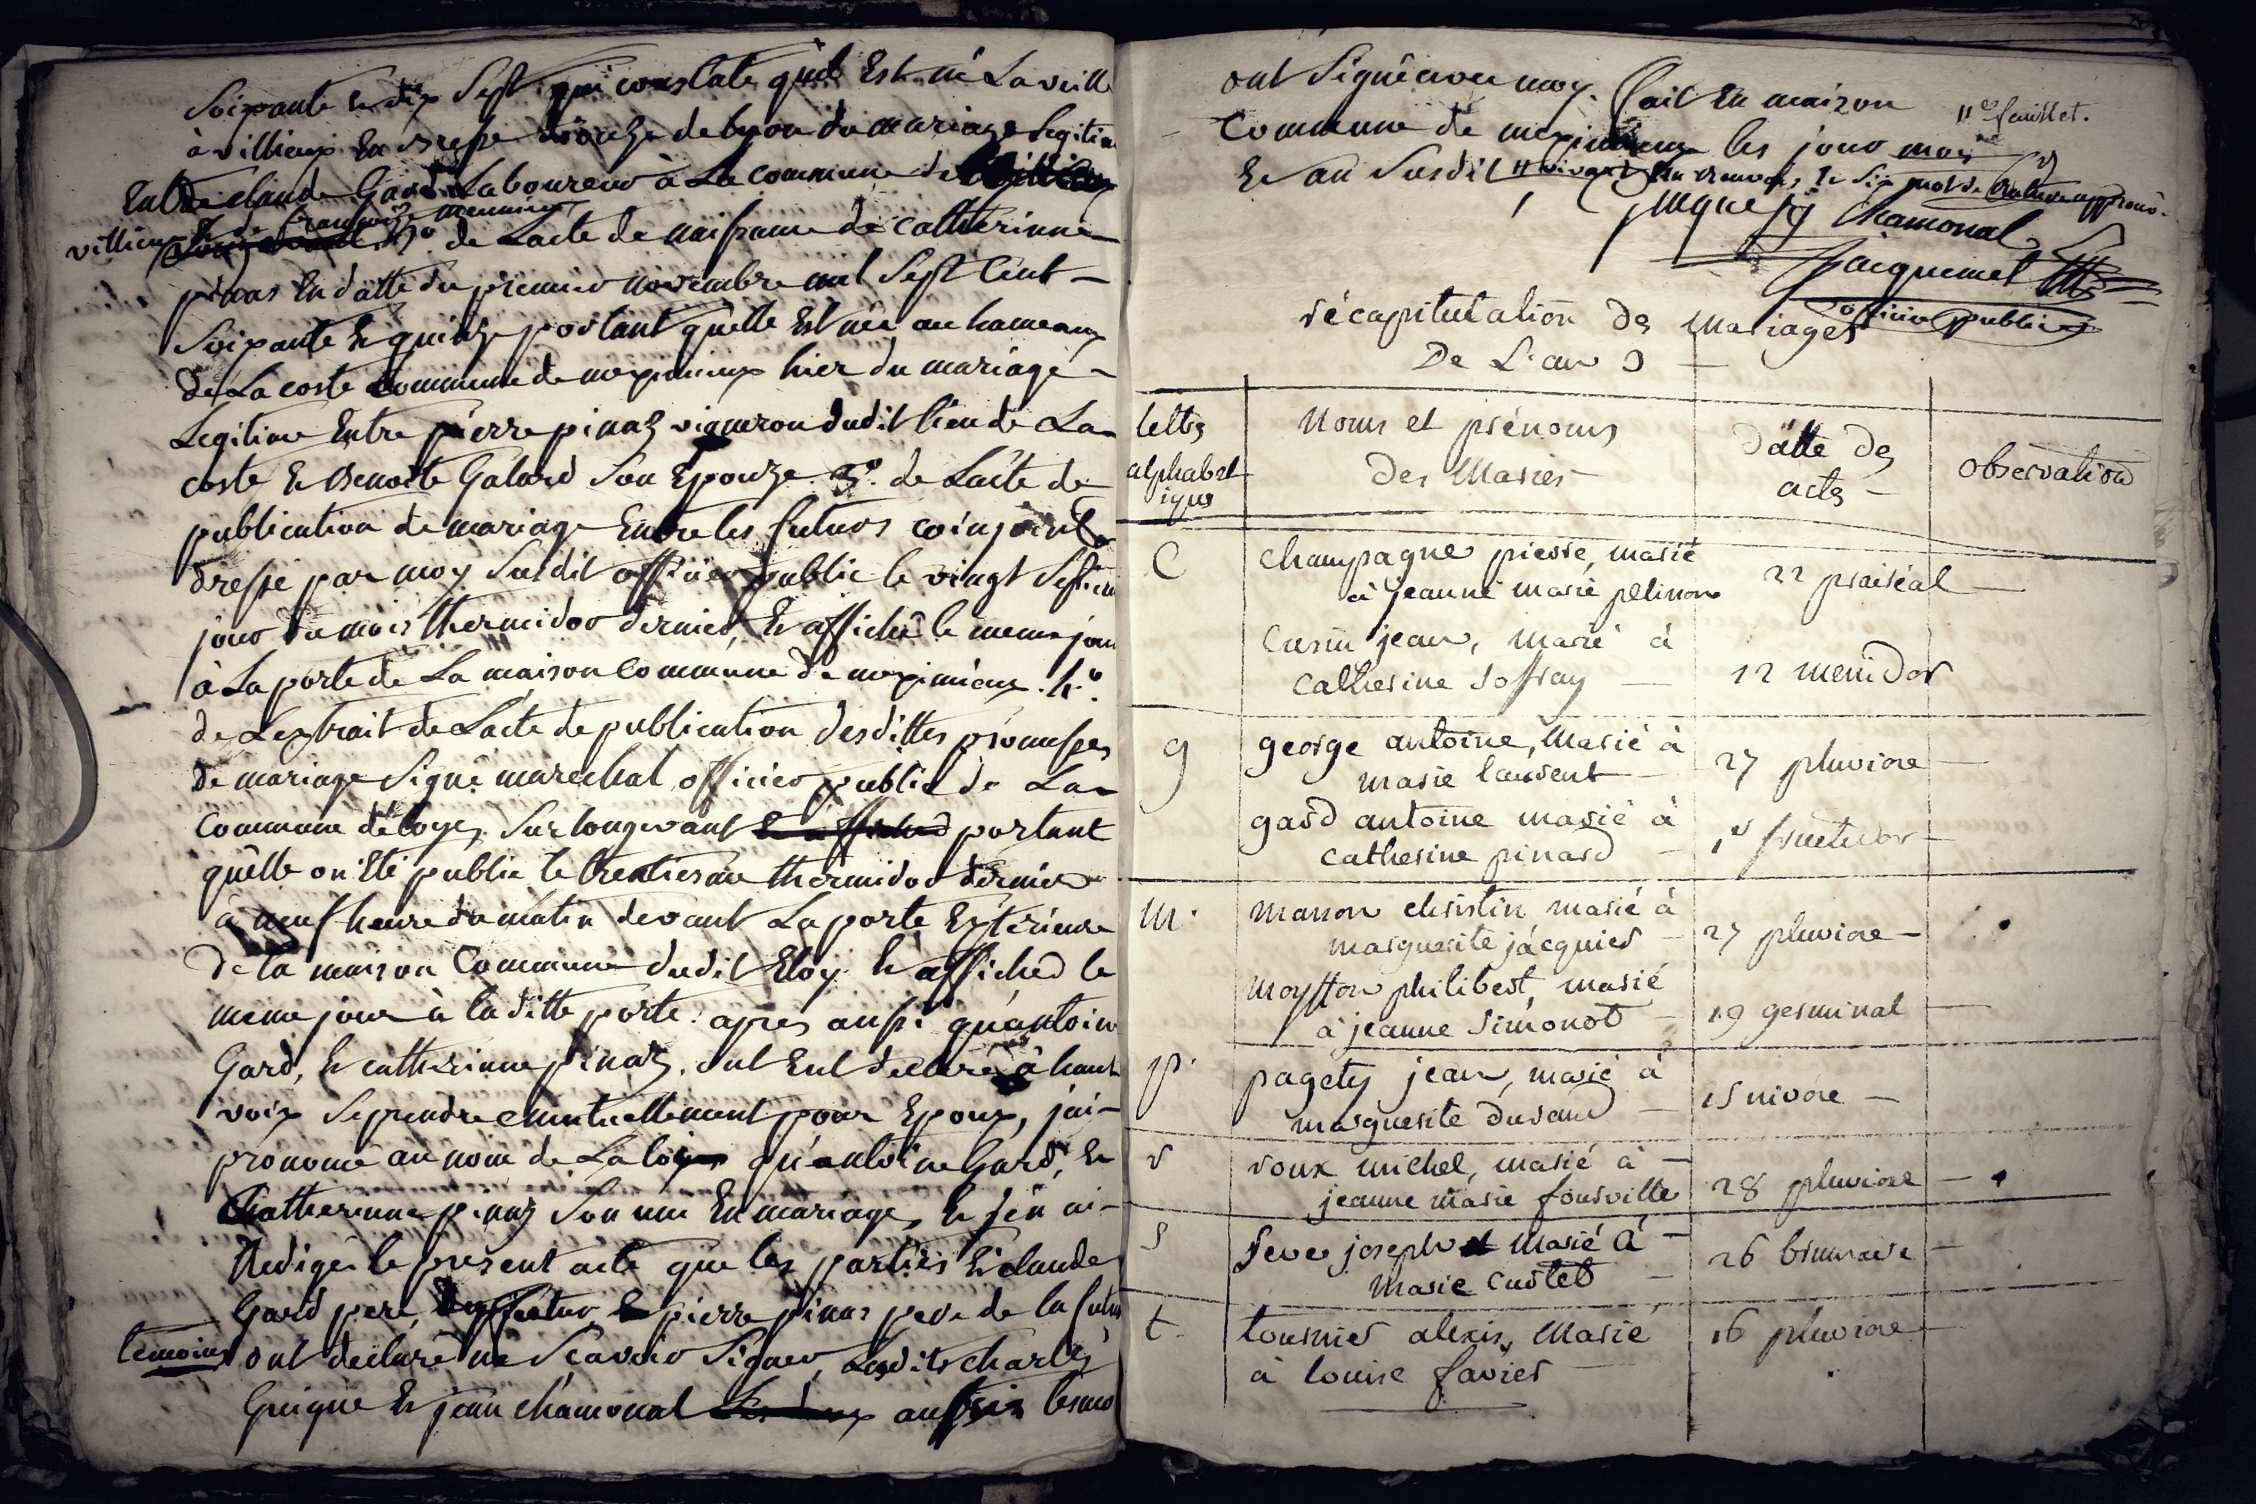 Soixante & dix Sept qui constate quil Est né La veille
à villieux En Bresse diocèze de lyon du mariage Legitime
Entre claude Gard Laboureur à La commune de
villieux & françoise meunier 2º de Lacte de naissance de catherinne
pinas En datte du premier novembre mil Sept Cent
Soixante & quinze portant qu'elle Est née au hameaux
de La coste Commune de meximieux hier du mariage
Legitime Entre pierre pinaz vigneron dudit lieu de La
coste & Benoite Galard Son Epouze. 3º. de Lacte de
publication de mariage Entre les futurs coinjoints
dressé par moy Susdit officier public le vingt Septiem
jour du mois thermidor dernier, & affiché le meme jour
à La porte de La maison Commune de meximieux. 4º.
de Lextrait de Lacte de publication desdittes promesses
de mariage Signé marechal officier public de La
Commune déloyes Sur longevant portant
quelle on Eté public le trentiesme thermidor dernier
à neuf heure du matin devant La porte Extérieure
de la maison Commune dudit Eloy & affiched le
meme jour à laditte porte. apres aussi qu'antoine
Gard, & catherinne pinaz, ont Eut declaré à haute
voix Se prendre mutuellement pour Epoux, j'ai
prononcé au nom de La loy qu'antoine Gard, &
Catherinne pinaz Son uni En mariage, & j'en ai
Redigé le present acte que les parties & claude
Gard pere, & pierre pinas pere de la futur
temoins ont declaré ne Scavoir Signer, Lesdits charles
Guigue & jean chamonal aussi temoi
ont Signé avec moy. fait En maizon
11e feuillet.
Commune de meximieux les jour mois
& an Susdit
guigue chamonal
Jacquemet
officier public
récapitulation des Mariages
De L'an 3
lettres
alphabet
ique
Noms et prénoms
Des Mariés
Datte des
actes
observation
C
Champagne pierre, marié
à jeanne marie pelinon
22 prairéal
Cusin jean, marié à
Catherine Joffray
12 mesidor
g
george antoine, Marié à
marie laurent
27 pluviose
gard antoine marié à
catherine pinard
1er fructidor
m.
manon christin marié à
marguerite jacquier
27 pluviose
moyffon philibert, marié
à jeanne Simonot
19 germinal
p.
pagety jean, marié à
marguerite durand
15 nivose
r
roux michel, marié à
jeanne marie fourville
28 pluviose
S
Seve joseph Marié à
Marie Curtet
26 brumaire
t.
tournier alexis, Marié
à louise favier
16 pluviose